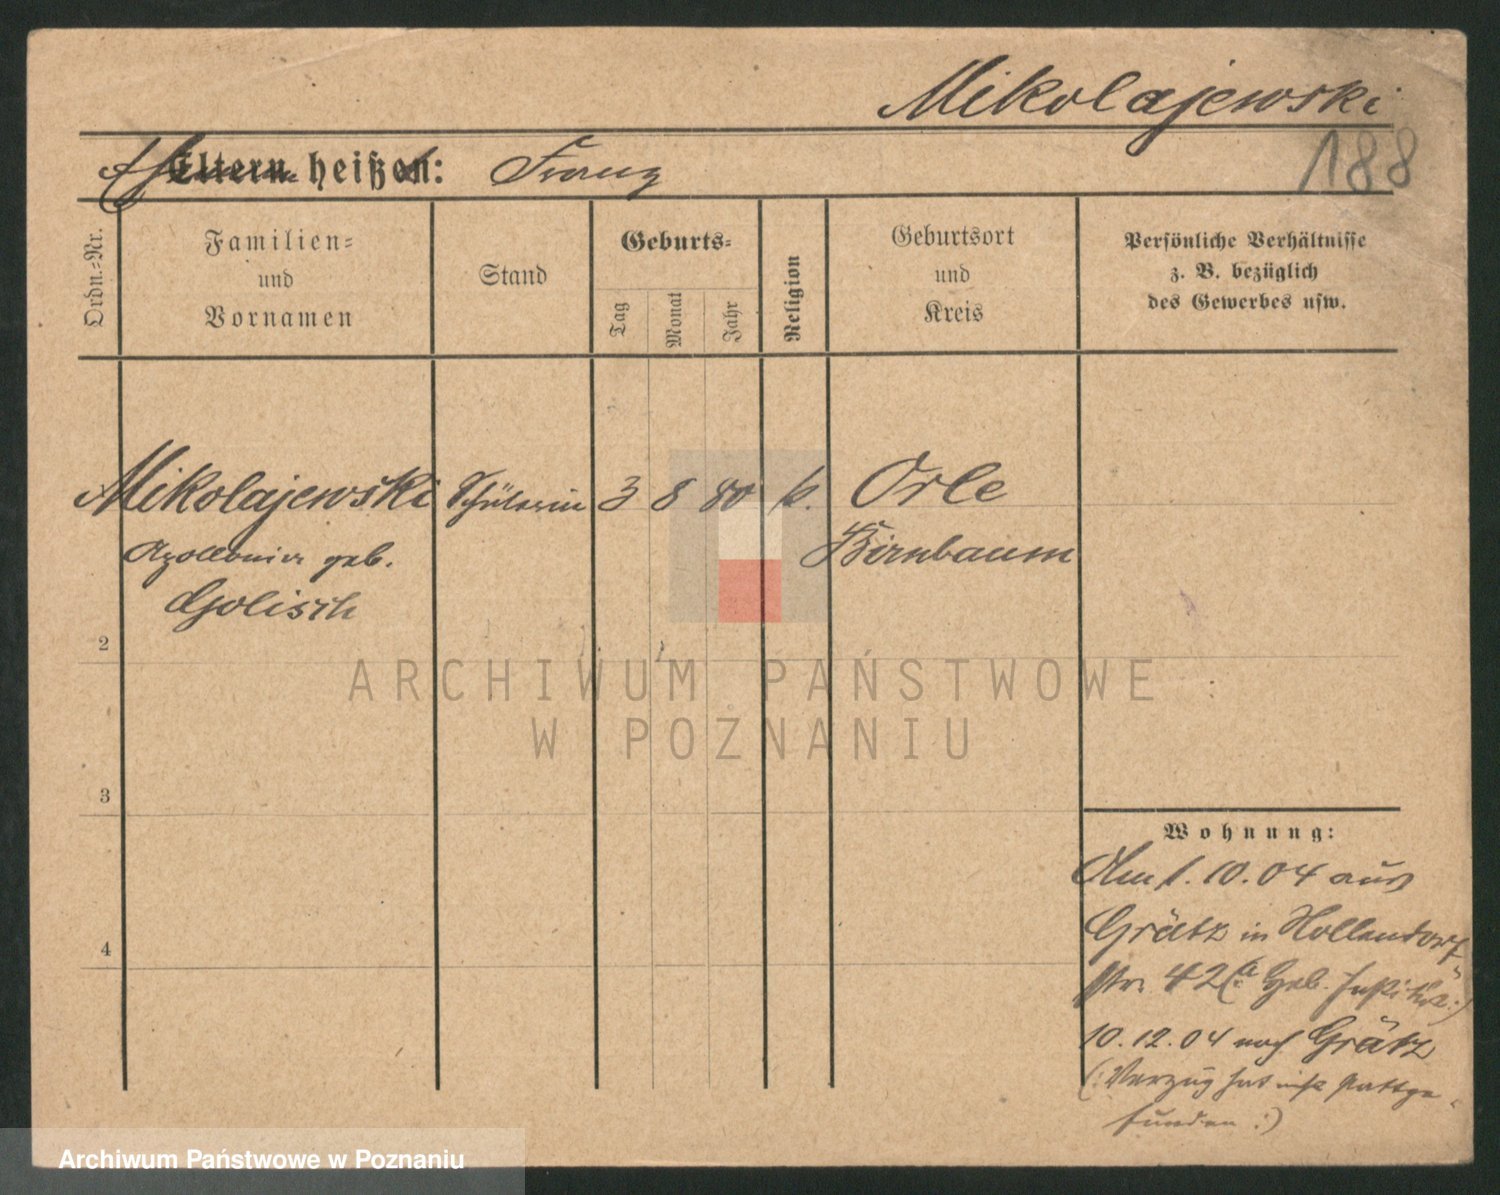 Mikolajewski
188
Eltern heißen: Franz
Ordn.=Nr.
Familien=
und
Vornamen
Stand
Geburts=
Tag
Monat
Jahr
Religion
Geburtsort
und
Kreis
Persönliche Verhältnisse
z. B. bezüglich
des Gewerbes usw.
Mikolajewski Schülerin 3 8 80 k. Orle
Apollonia geb. Birnbaum
Golisch
2
3
4
Wohnung:
Am 1. 10. 04 aus
Grätz in Hollendorf
str. 42 Geb. Institut:)
10. 12. 04 nach Grätz
(: Verzug hat nicht stattge-
funden :)
ARCHIWUM PAŃSTWOWE
W POZNANIU
Archiwum Państwowe w Poznaniu